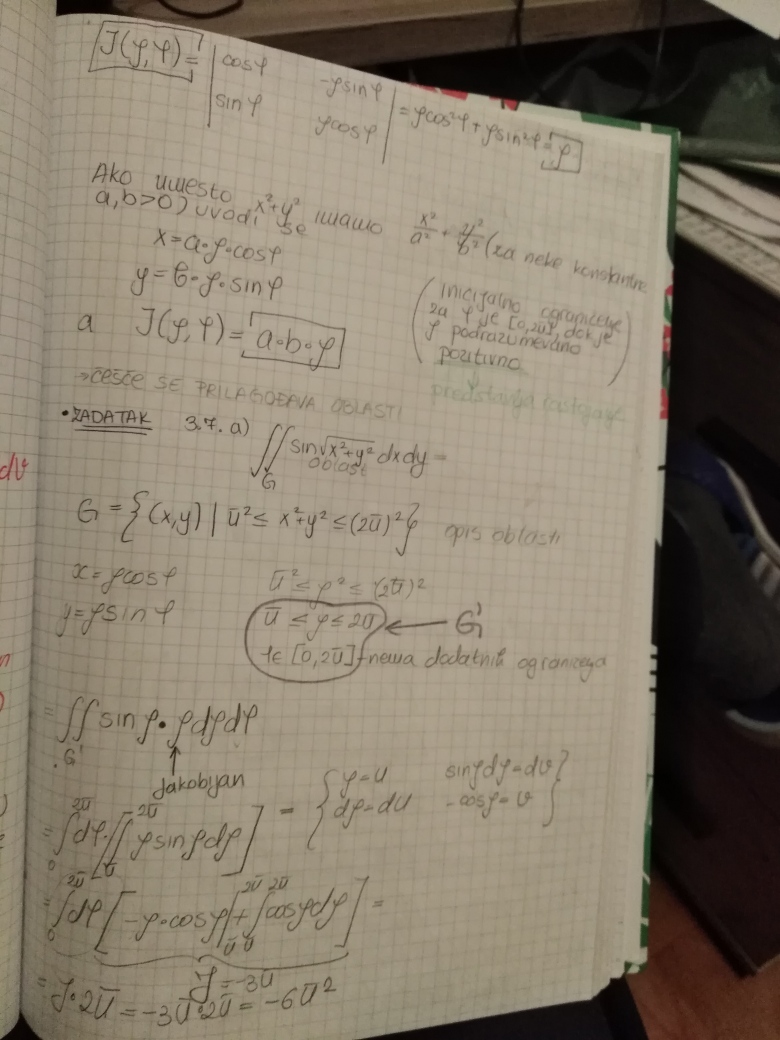 J(ρ,φ) = | cosφ -ρsinφ |
| sinφ ρcosφ | = ρcos²φ + ρsin²φ = ρ
Ako umesto x²+y² imamo x²/a² + y²/b² (za neke konstante
a,b>0) uvodi se
x=a·ρ·cosφ
y=b·ρ·sinφ
(inicijalno ograničenje
za φ je [0,2π], dok je
ρ podrazumevano
pozitivno)
a J(ρ,φ) = a·b·ρ
predstavlja rastojanje
→ČEŠĆE SE PRILAGOĐAVA OBLASTI
•ZADATAK 3.7. a) ∬ sin√(x²+y²) dxdy =
G oblast
G = {(x,y) | π² ≤ x²+y² ≤ (2π)²} opis oblasti
x=ρcosφ π² ≤ ρ² ≤ (2π)²
y=ρsinφ π ≤ ρ ≤ 2π ← G'
φ∈[0,2π] → nema dodatnih ograničenja
= ∬ sinρ·ρdρdφ
G'
Jakobijan
= ∫₀^2π dφ·[∫π^2π ρsinρdρ] = {ρ=u sinρdρ=dv
dρ=du -cosρ=v}
= ∫₀^2π dφ[-ρ·cosρ|π^2π + ∫π^2π cosρdρ] =
J = -3π
= J·2π = -3π·2π = -6π²
dv